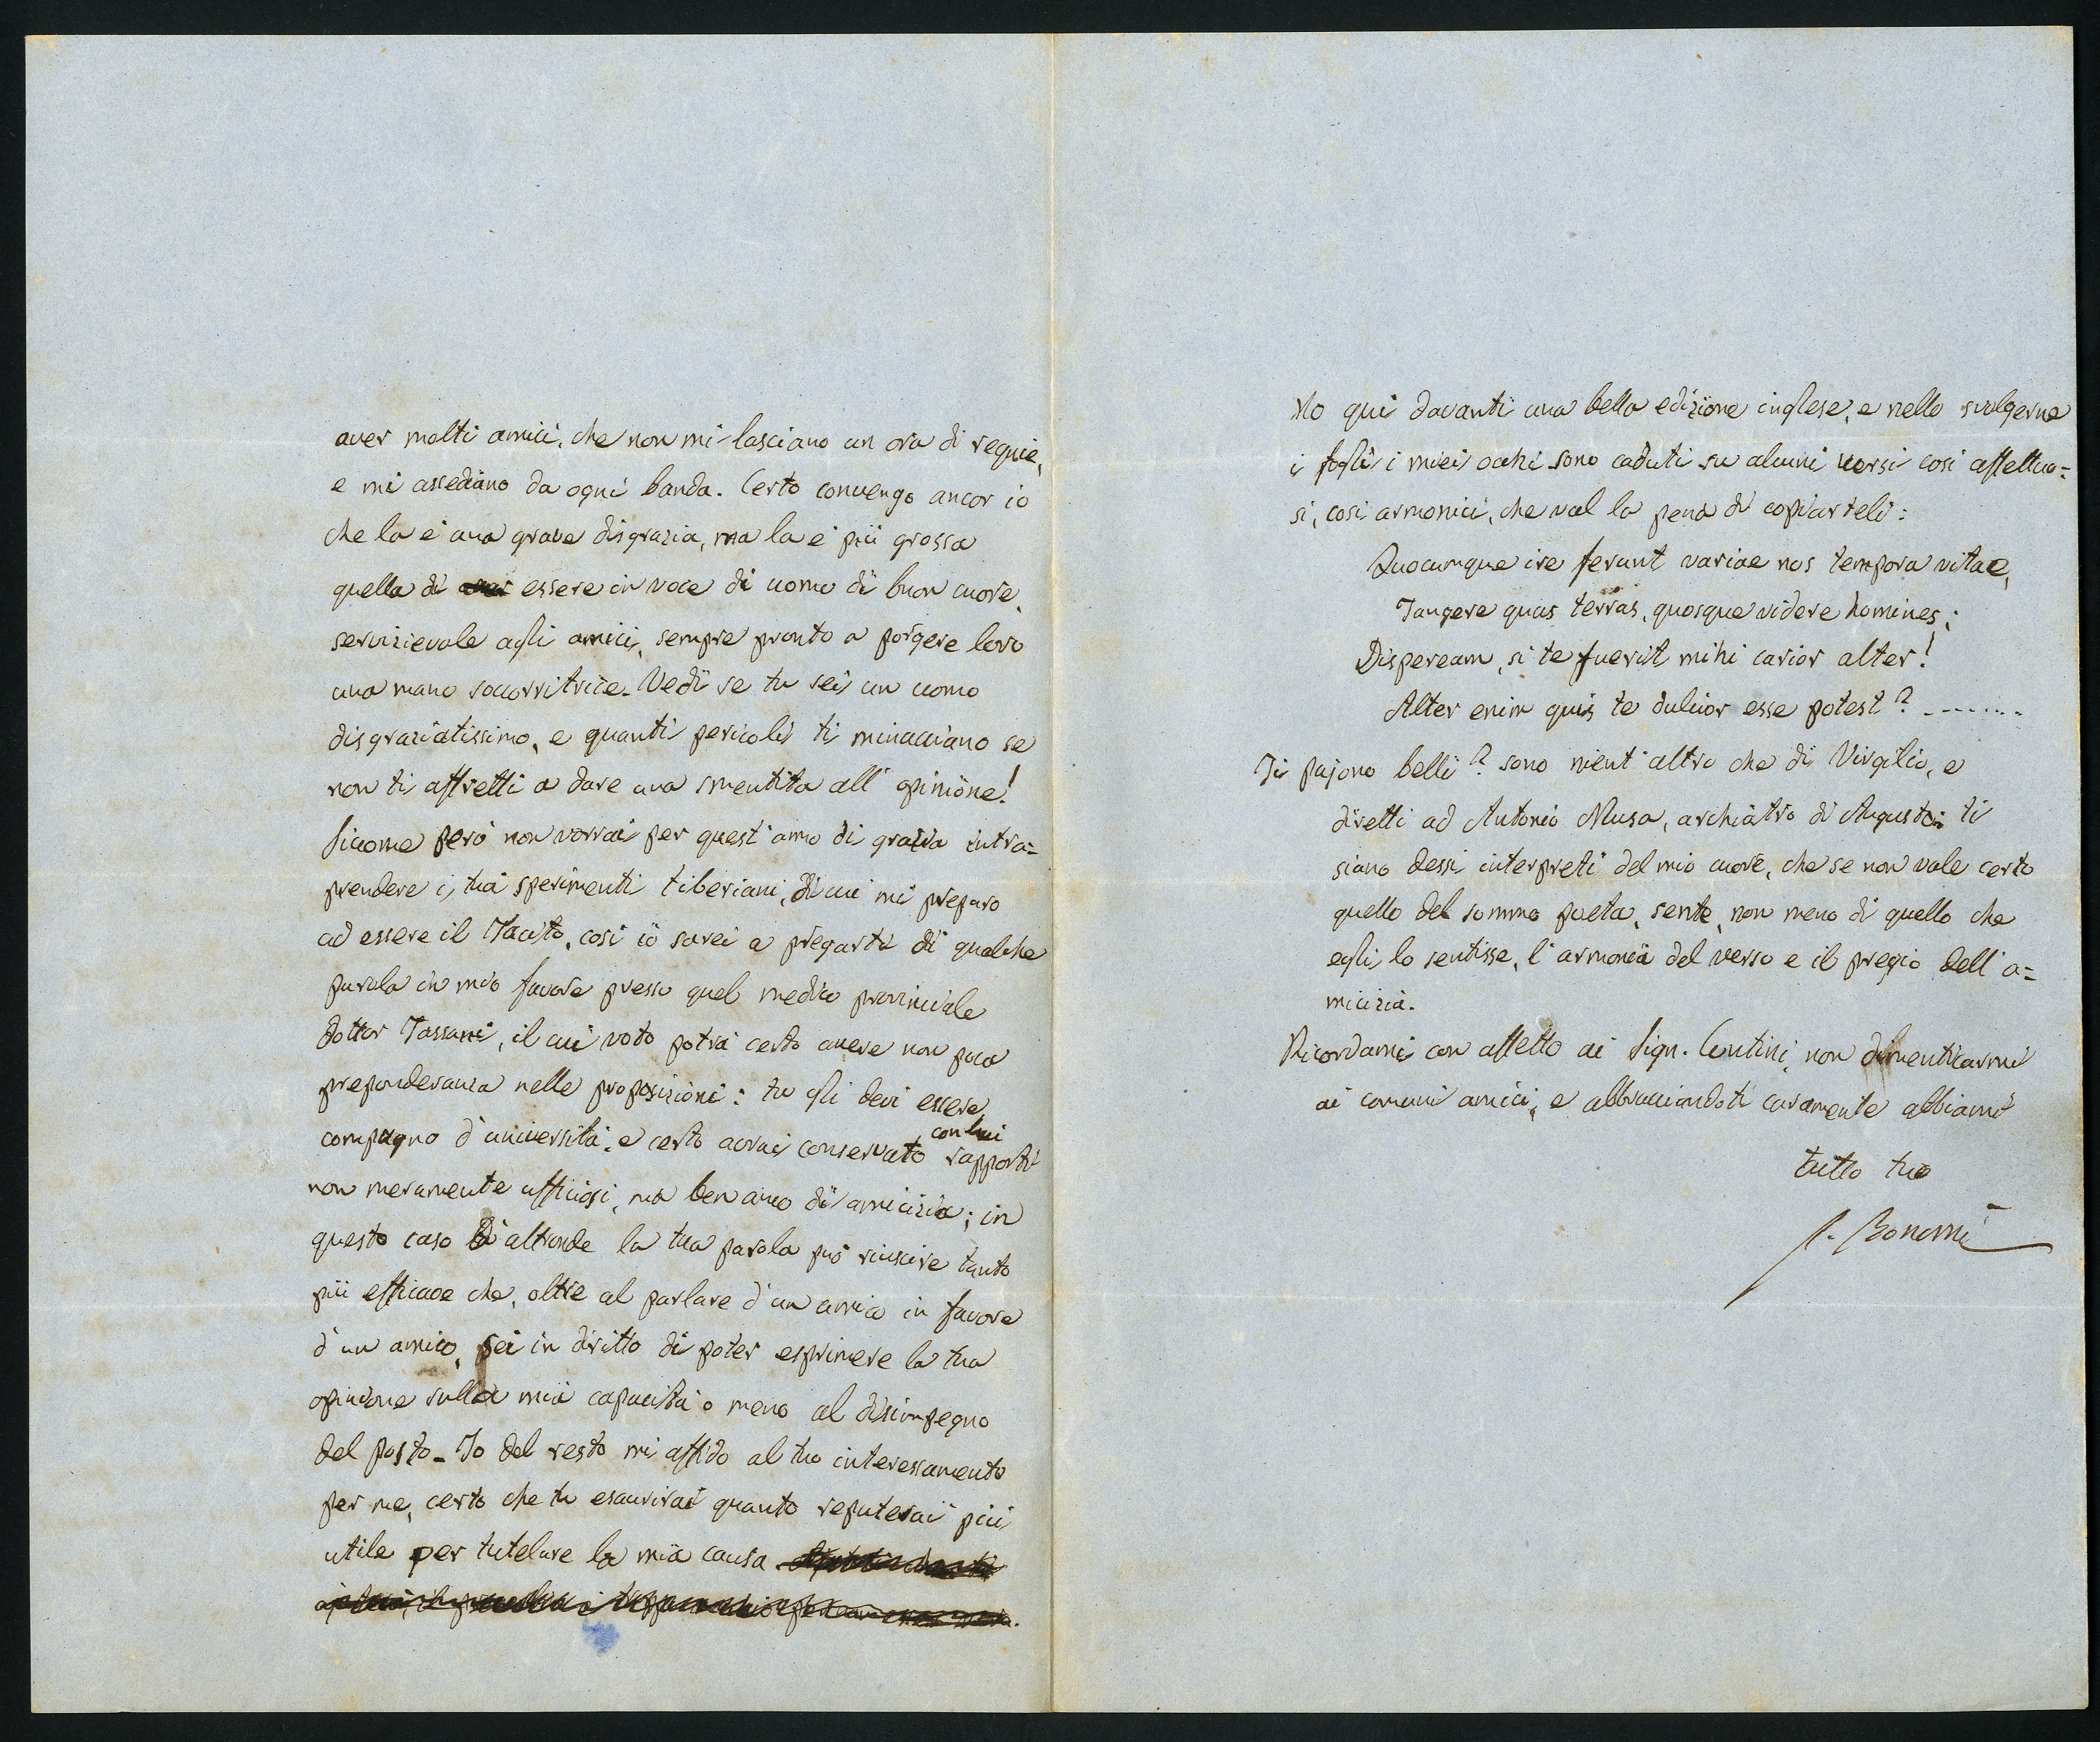 aver molti amici, che non mi lasciano un ora di requie,
e mi assediano da ogni banda. Certo convengo ancor io
che la è una grave disgrazia, ma la è più grossa
quella di essere in voce di uomo di buon cuore,
servizievole agli amici, sempre pronto a porgere loro
una mano soccorritrice. Vedi se tu sei un uomo
disgraziatissimo, e quanti pericoli ti minacciano se
non ti affretti a dare una smentita all' opinione!
Siccome però non vorrai per quest' anno di grazia intra=
prendere i tuoi sperimenti tiberiani, di cui mi preparo
ad essere il Tacito, così io sarei a pregarti di qualche
parola in mio favore presso quel medico provinciale
dottor Tassani, il cui voto potrà certo avere non poca
preponderanza nelle proposizioni: tu gli devi essere
compagno d' università, e certo avrai conservato con lui rapporti
non meramente officiosi, ma ben anco di amicizia; in
questo caso d' altronde la tua parola può riuscire tanto
più efficace che, oltre al parlare d' un amico in favore
d' un amico, sei in diritto di poter esprimere la tua
opinione sulla mia capacità o meno al disimpegno
del posto. Io del resto mi affido al tuo interessamento
per me, certo che tu esaurirai quanto reputerai più
utile per tutelare la mia causa
Ho qui davanti una bella edizione inglese, e nello svolgerne
i fogli i miei occhi sono caduti su alcuni versi così affettuo=
si, così armonici, che val la pena di copiarteli:
Quocunque ire ferunt variae nos tempora vitae,
Tangere quas terras, quosque videre homines;
Dispeream, si te fuerit mihi carior alter!
Alter enim quis te dulcior esse potest? .......
Ti pajono belli? sono nient' altro che di Virgilio, e
diretti ad Antonio Musa, archiatro di Augusto: ti
siano dessi interpreti del mio cuore, che se non vale certo
quello del sommo poeta, sente, non meno di quello che
egli lo sentisse, l' armonia del verso e il pregio dell' a=
micizia.
Ricordami con affetto ai Sign. Centini, non dimenticarmi
ai comuni amici, e abbracciandoti caramente abbiami
tutto tuo
S. Bonomi